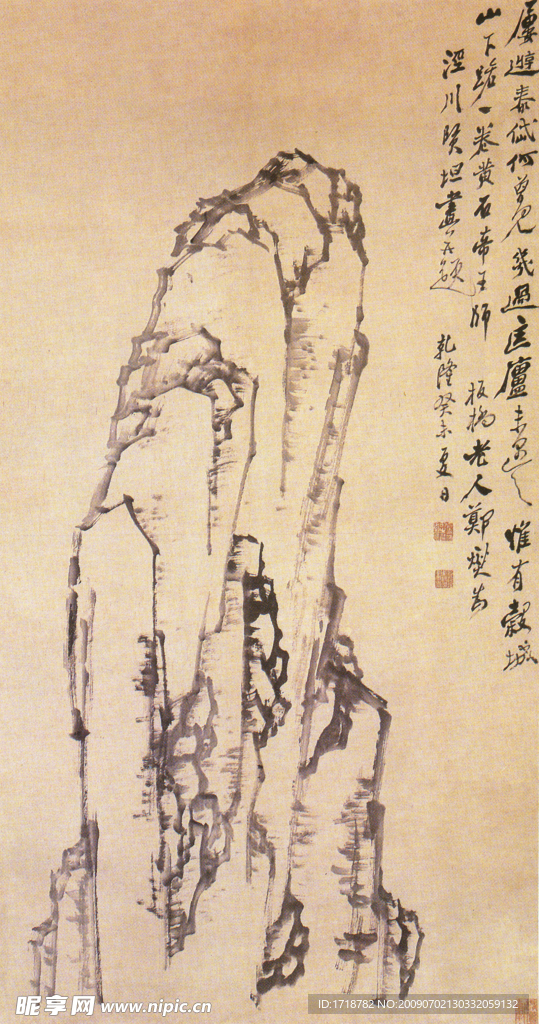 屢遊泰岱何曾見幾過匡廬未遇之惟有穀城
山下路一卷黃石帝王師 板橋老人鄭燮為
涇川賢坦畫并題
乾隆癸未夏日
昵享网 www.nipic.cn
ID:1718782 NO:20090702130332059132